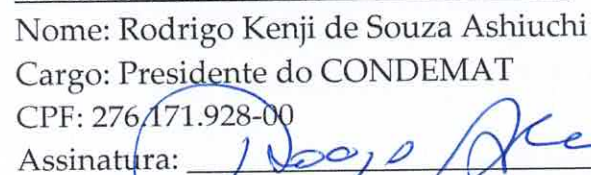 Nome: Rodrigo Kenji de Souza Ashiuchi
Cargo: Presidente do CONDEMAT
CPF: 276.171.928-00
Assinatura: